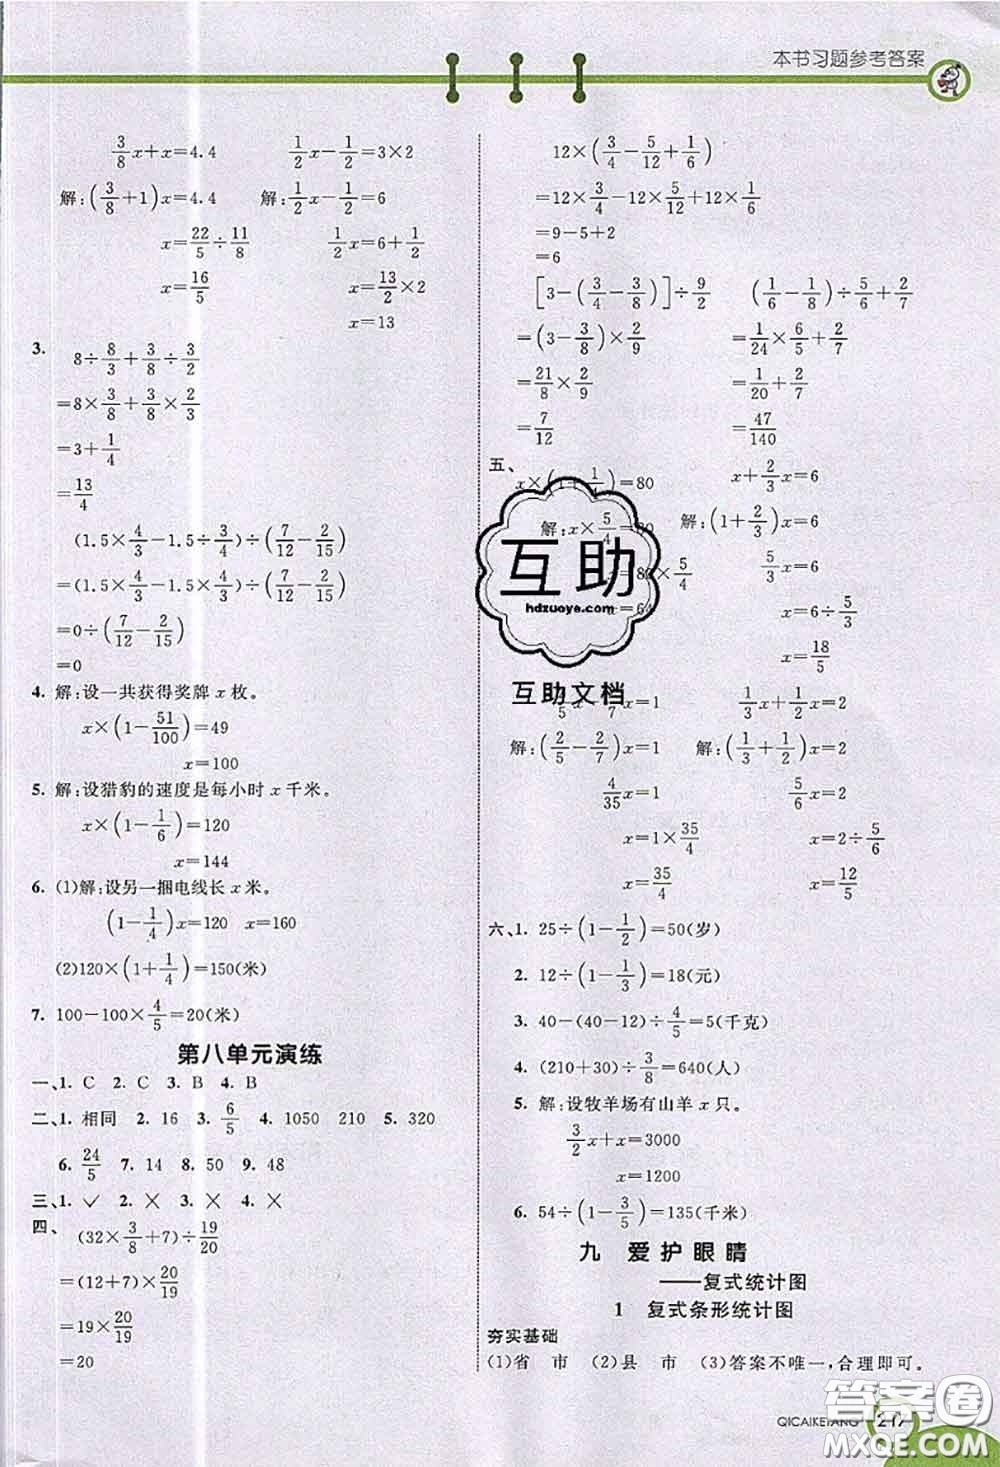 本书习题参考答案
3/8x+x=4.4 1/2x-1/2=3×2
解:(3/8+1)x=4.4 解:1/2x-1/2=6
x=22/5÷11/8 1/2x=6+1/2
x=16/5 x=13/2×2
x=13
3. 8÷8/3+3/8÷3/2
=8×3/8+3/8×2/3
=3+1/4
=13/4
(1.5×4/3-1.5÷3/4)÷(7/12-2/15)
=(1.5×4/3-1.5×4/3)÷(7/12-2/15)
=0÷(7/12-2/15)
=0
4. 解:设一共获得奖牌x枚。
x×(1-51/100)=49
x=100
5. 解:设猎豹的速度是每小时x千米。
x×(1-1/6)=120
x=144
6. (1)解:设另一捆电线长x米。
(1-1/4)x=120 x=160
(2)120×(1+1/4)=150(米)
7. 100-100×4/5=20(米)
第八单元演练
一、1. C 2. C 3. B 4. B
二、1. 相同 2. 16 3. 6/5 4. 1050 210 5. 320
6. 24/5 7. 14 8. 50 9. 48
三、1. ✓ 2. × 3. × 4. ×
四、(32×3/8+7)÷19/20
=(12+7)×20/19
=19×20/19
=20
12×(3/4-5/12+1/6)
=12×3/4-12×5/12+12×1/6
=9-5+2
=6
[3-(3/4-3/8)]÷9/2 (1/6-1/8)÷5/6+2/7
=(3-3/8)×2/9 =1/24×6/5+2/7
=21/8×2/9 =1/20+2/7
=7/12 =47/140
五、x×(1+1/4)=80 x+2/3x=6
解:x×5/4=80 解:(1+2/3)x=6
x=80×5/4 5/3x=6
x=64 x=6÷5/3
x=18/5
/5x-/7x=1 1/3x+1/2x=2
解:(2/5-2/7)x=1 解:(1/3+1/2)x=2
4/35x=1 5/6x=2
x=1×35/4 x=2÷5/6
x=35/4 x=12/5
六、1. 25÷(1-1/2)=50(岁)
2. 12÷(1-1/3)=18(元)
3. 40-(40-12)÷4/5=5(千克)
4. (210+30)÷3/8=640(人)
5. 解:设牧羊场有山羊x只。
3/2x+x=3000
x=1200
6. 54÷(1-3/5)=135(千米)
九 爱护眼睛
——复式统计图
1 复式条形统计图
夯实基础
(1)省 市 (2)县 市 (3)答案不唯一,合理即可。
QICAIKETANG 217
互助
hdzuoye.com
互助文档
答案圈
MXQE.COM